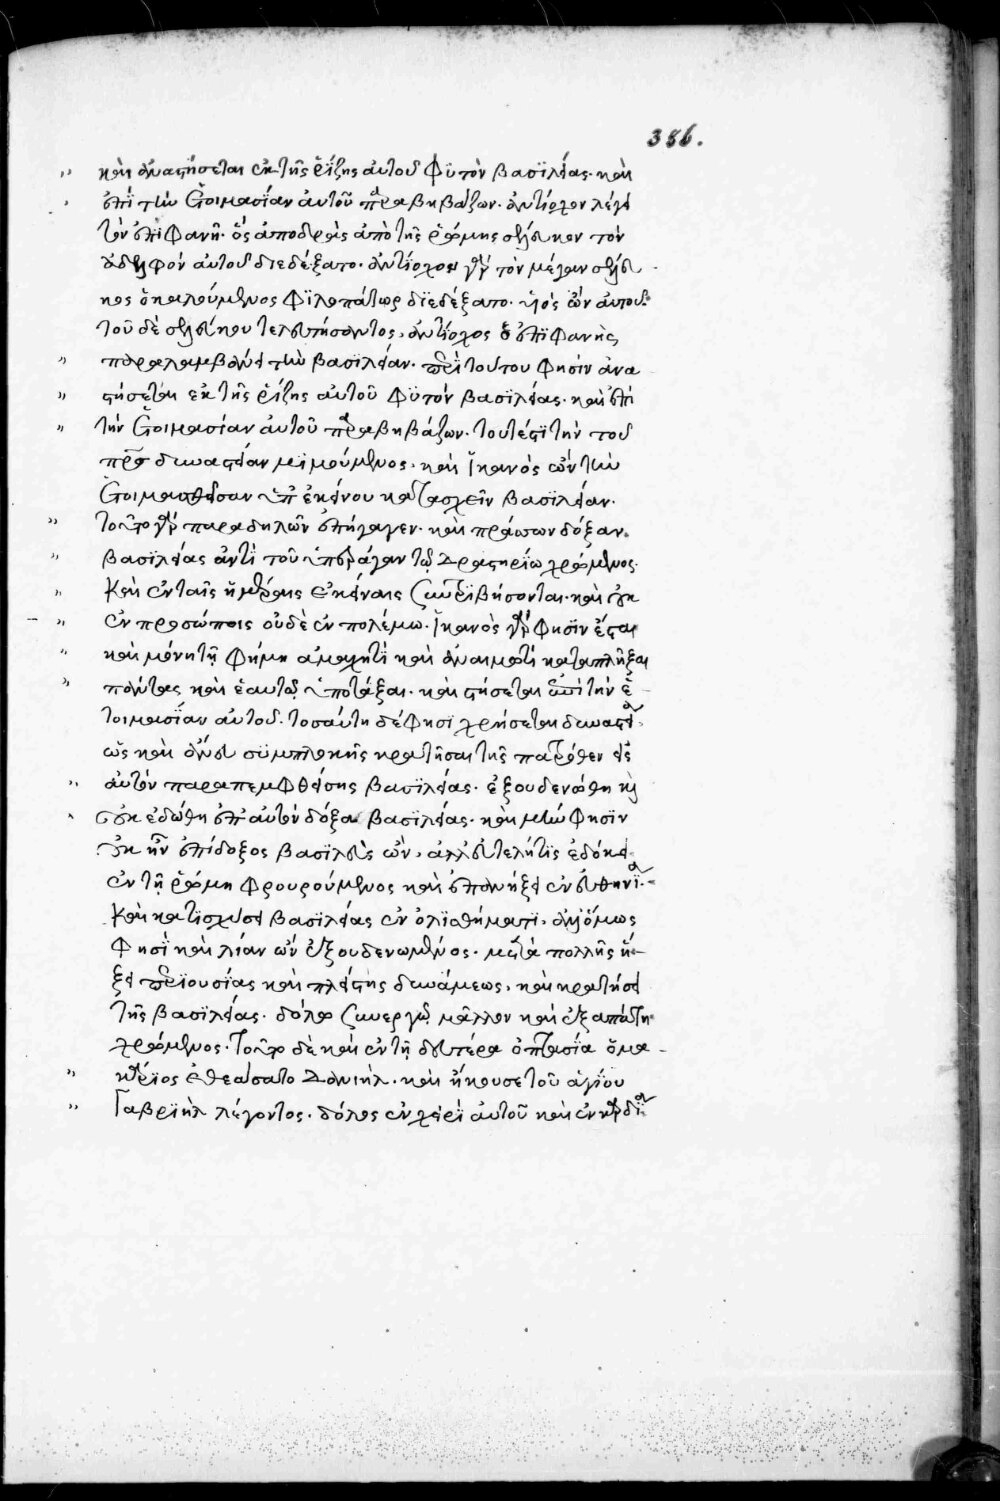 386.
καὶ ἀναστήσεται ἐκ τῆς ῥίζης αὐτοῦ φϋτὸν βασϊλείας· καὶ
ἐπὶ τὴν ἑτοιμασίαν αὐτοῦ παραβηβάζων· ἀντίοχον λέγει
τὸν ἐπιφανῆ· ὃς ἀποδρὰς ἀπὸ τῆς ῥώμης σέλευκον τὸν
ἀδελφὸν αὐτοῦ διεδέξατο· ἀντίοχον γὰρ τὸν μέγαν σέλευ
κος ὁ καλούμενος φϊλοπάτωρ δϊεδέξατο· υἱὸς ὢν αὐτοῦ·
τοῦ δὲ σελεύκου τελευτήσαντος, ἀντίοχος ὁ ἐπϊφανὴς
παραλαμβάνει τὴν βασϊλείαν· περὶ τούτου φησὶν ἀνα
στήσεται ἐκ τῆς ῥίζης αὐτοῦ φϋτὸν βασϊλείας· καὶ ἐπὶ
τὴν ἑτοιμασίαν αὐτοῦ παραβηβάζων· τουτέστι τὴν τοῦ
πρς δυναστείαν μϊμούμενος· καὶ ἱκανὸς ὢν τὴν
ἑτοιμασθεῖσαν ὑπ' ἐκείνου κατασχεῖν βασϊλείαν·
τοῦτο γὰρ παραδηλῶν ἐπήγαγεν· καὶ πράσσων δόξαν
βασϊλείας ἀντὶ τοῦ ὑπεράγαν τῷ δραστηρίω χρώμενος·
Καὶ ἐν ταῖς ἡμέραις ἐκείναις συντριβήσονται· καὶ οὐκ
ἐν προσώποις οὐδὲ ἐν πολέμω· ἱκανὸς γὰρ φησὶν ἔσται
καὶ μόνη τῇ φήμη ἀμαχητὶ καὶ ἀναιμωτὶ καταπλῆξαι
πάντας καὶ ἑαυτῷ ὑποτάξαι· καὶ στήσεται ἐπὶ τὴν ἑ
τοιμασΐαν αὐτοῦ· τοσαύτη δέ φησϊ χρήσεται δυναστεία
ὡς καὶ ἄνευ σϋμπλοκῆς κρατῆσαι τῆς πατρόθεν εἰς
αὐτὸν παραπεμφθείσης βασϊλείας· ἐξουδενώθη κὶ
οὐκ ἐδώθη ἐπ' αὐτὸν δόξα βασϊλείας· καὶ μὴν φησὶν
οὐκ ἦν ἐπίδοξος βασϊλεὺς ὤν, ἀλλ' εὐτελής τις ἐδόκει
ἐν τῇ ῥώμη φρουρούμενος καὶ ἐπανήξει ἐν εὐθηνία
Καὶ κατισχύσει βασϊλείας ἐν ὀλϊσθήμασι· ἀλλ' ὅμως
φησὶ καὶ λίαν ὢν ἐξουδενωμένος· μετὰ πολλῆς ἥ
ξει περϊουσΐας καὶ πλείστης δυνάμεως, καὶ κρατήσει
τῆς βασϊλείας· δόλω συνεργῷ μᾶλλον καὶ ἐξαπάτη
χρώμενος· τοῦτο δὲ καὶ ἐν τῇ δευτέρα ὀπτασία ὁ μα
κάρϊος ἐθεάσατο δανιὴλ· καὶ ἤκουσε τοῦ ἁγΐου
Γαβρϊὴλ λέγοντος· δόλος ἐν χειρὶ αὐτοῦ καὶ ἐν καρδία